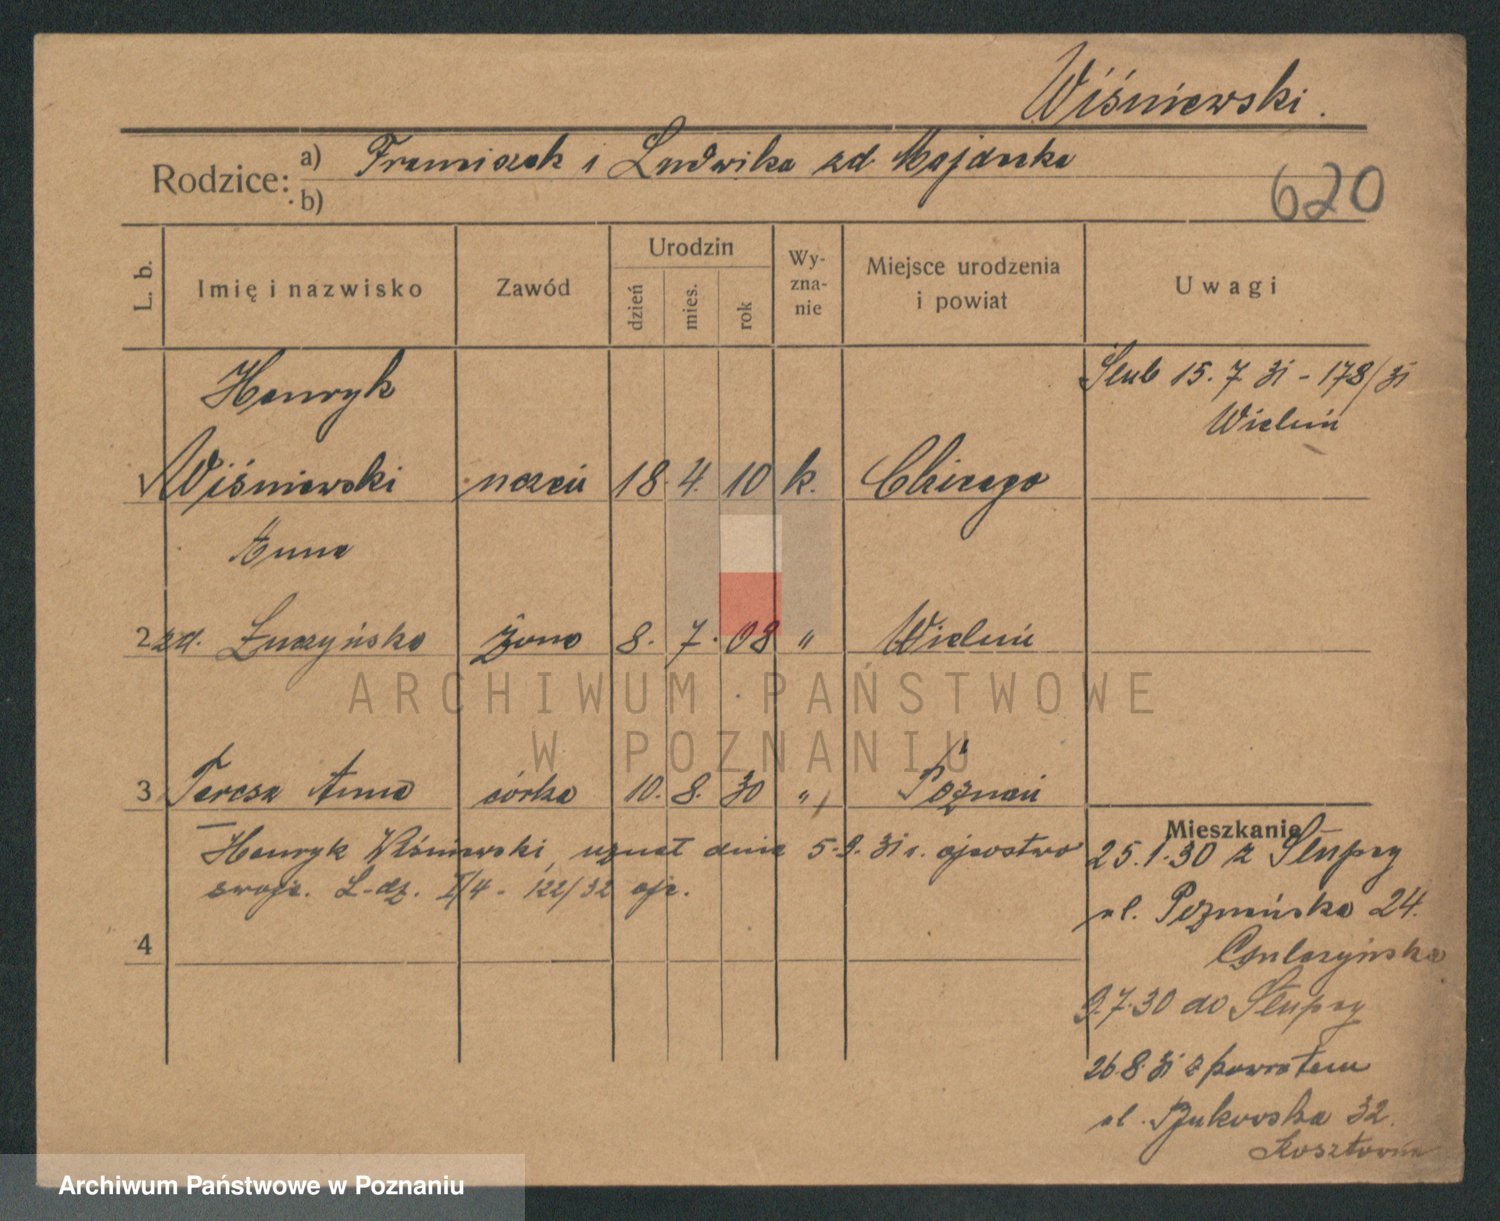 Wiśniewski.
Rodzice: a) Franciszek i Ludwika zd. Majdecka
b)
620
L. b. Imię i nazwisko Zawód Urodzin dzień mies. rok Wy-zna-nie Miejsce urodzenia i powiat Uwagi
Henryk
Ślub 15. 7. 31 - 178/31
Wieluń
1 Wiśniewski uczeń 18. 4. 10 k. Chicago
Anna
2 zd. Łuczyńska żona 8. 7. 08 " Wieluń
ARCHIWUM PAŃSTWOWE
W POZNANIU
3 Teresa Anna córka 10. 8. 30 " Poznań
Mieszkanie
Henryk Wiśniewski, uznał dnia 5.9.31 r. ojcostwo
swoje. L.dz. I/4 - 122/32
4
25.1.30 z Słupcy
ul. Poznańska 24.
9.7.30 do Słupcy
26.8.31 z powrotem
ul. Bukowska 32.
Archiwum Państwowe w Poznaniu